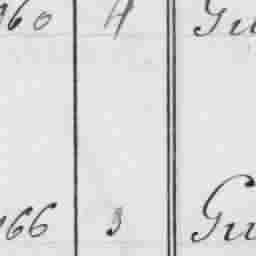 60 4 Gu
166 3 Gu